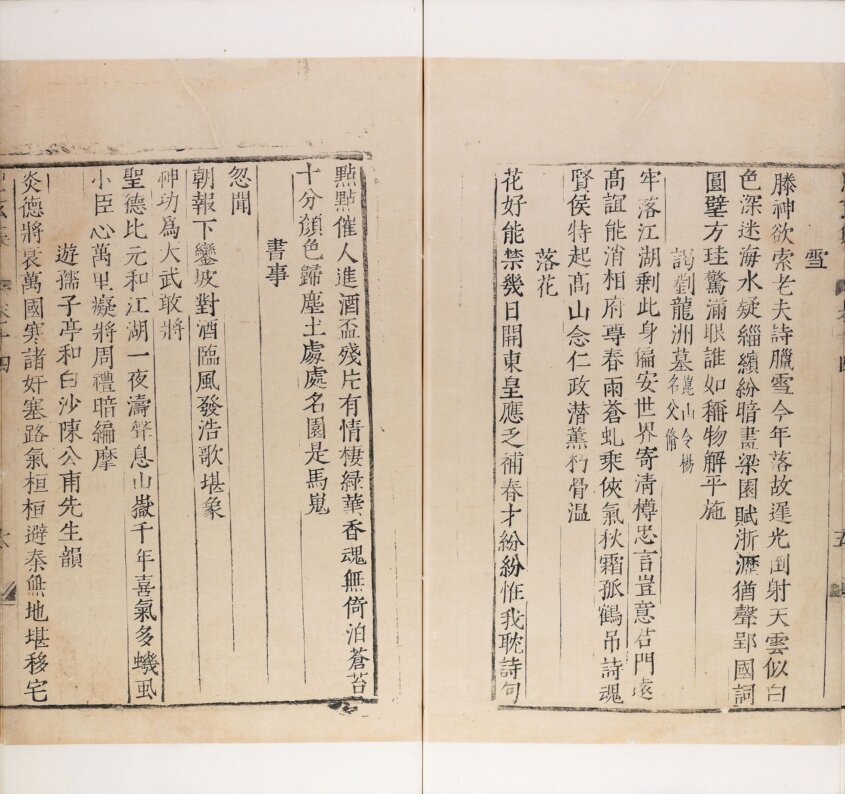 雪
滕神欲索老夫詩臘雪今年落故遲光囬射天雲似白
色深迷海水疑緇繽紛暗畫梁園賦浙瀝猶聲郢國詞
圓璧方珪驚滿眼誰如稱物解平施
謁劉龍洲墓崑山令楊名父脩
牢落江湖剩此身偏安世界寄清樽忠言豈意君門遠
高誼能消相府尊春雨蒼虬乘俠氣秋霜孤鶴吊詩魂
賢侯特起高山念仁政潛薰朽骨温
落花
花好能禁幾日開東皇應乏補春才紛紛恠我耽詩句
點點催人進酒盃殘片有情棲綠華香魂無倚泊蒼苔
十分顔色歸塵土處處名園是馬嵬
書事
忽聞
朝報下鑾坡對酒臨風發浩歌堪象
神功爲大武敢將
聖德比元和江湖一夜濤聲息山嶽千年喜氣多蟣虱
小臣心萬里癡將周禮暗編摩
遊孺子亭和白沙陳公甫先生韻
炎德將衰萬國寒諸奸塞路氣桓桓避秦無地堪移宅